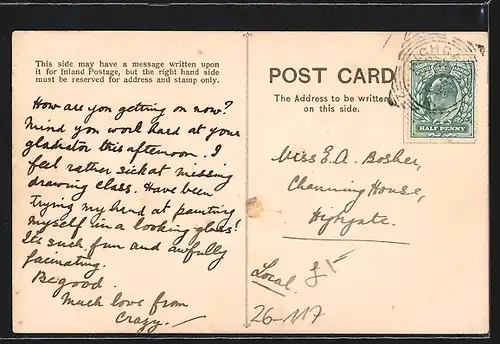 This side may have a message written upon
it for Inland Postage, but the right hand side
must be reserved for address and stamp only.
How are you getting on now?
Mind you work hard at your
gladiator this afternoon. I
feel rather sick at missing
drawing class. Have been
trying my hand at painting
myself in a looking glass!
Its such fun and awfully
facinating.
Be good.
Much love from
Crazy.
POST CARD
The Address to be written
on this side.
HALF PENNY
Miss E. A. Bosher,
Channing House,
Highgate.
Local £1/-
26-117